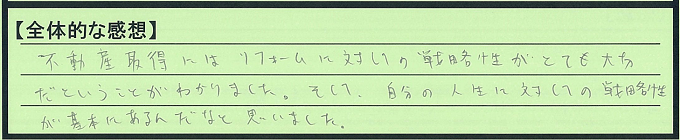 【全体的な感想】
不動産取得にはリフォームに対しての戦略性がとても大切
だということがわかりました。そして、自分の人生に対しての戦略性
が基本にあるんだなと思いました。